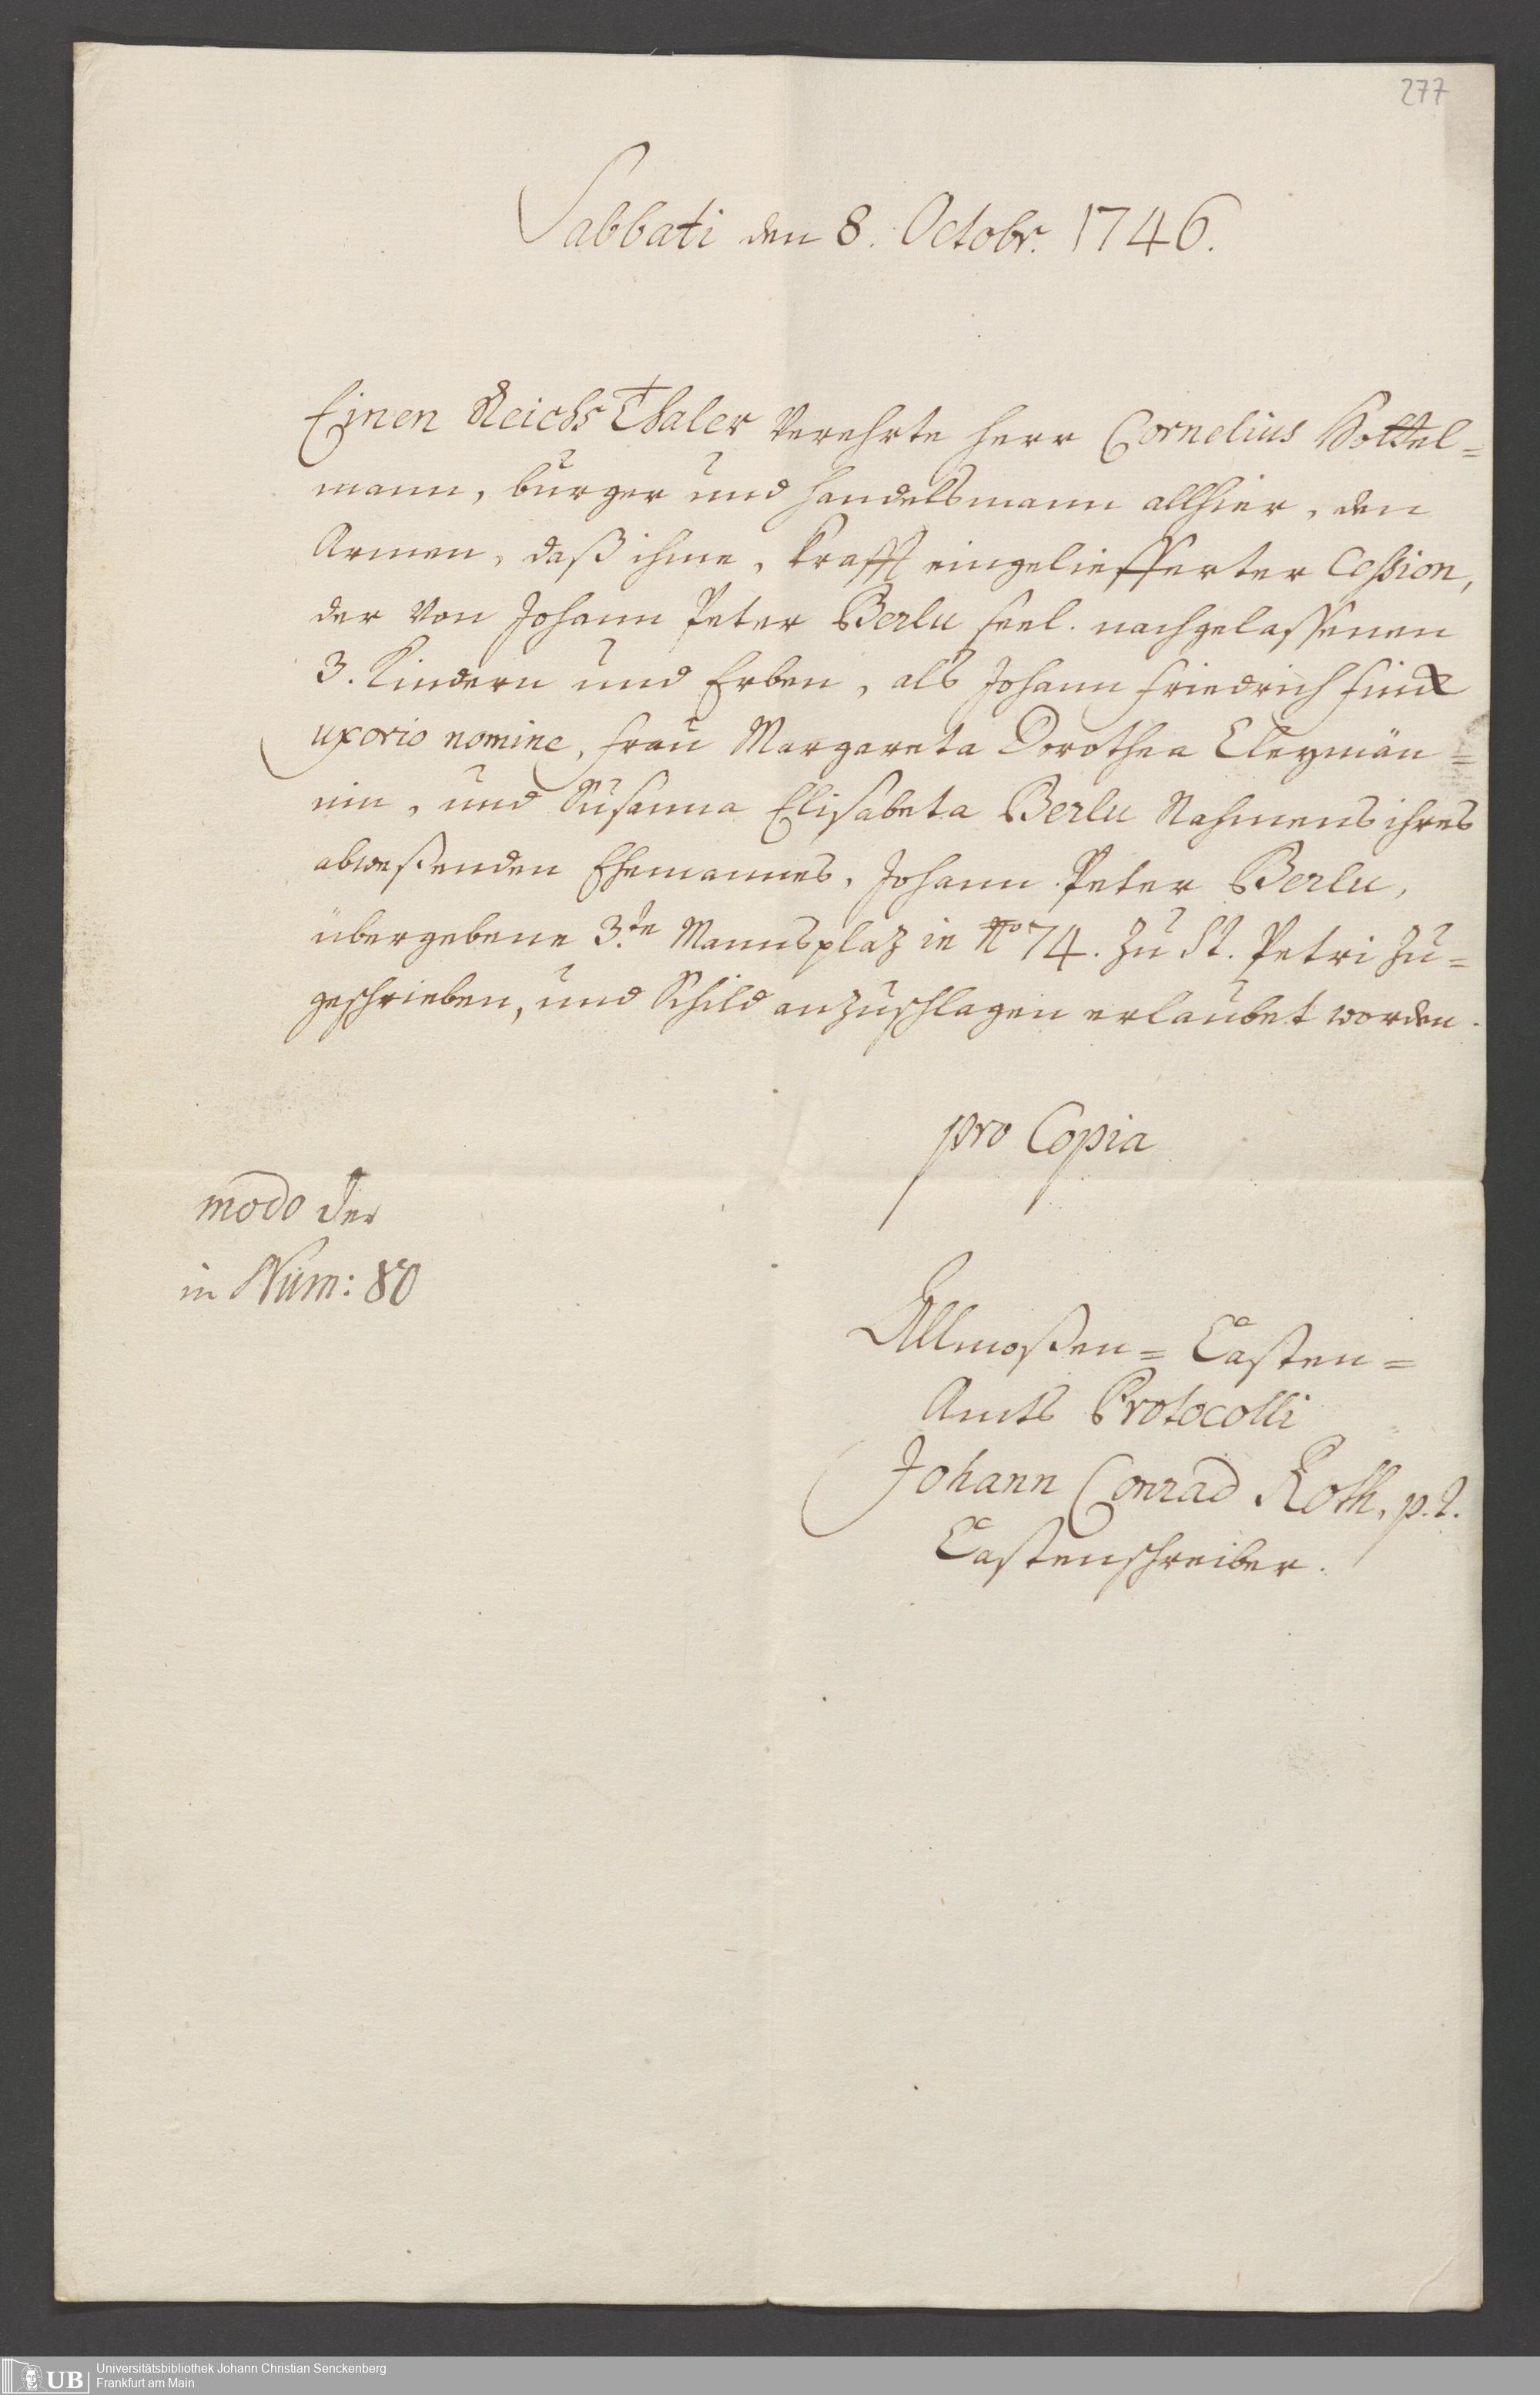 277
Sabbati den 8. Octobr. 1746.
Einen Reichs Thaler Verehrte Herr Cornelius Hottel=
mann, burger und Handelsmann allhier, den
Armen, daß ihme, krafft eingeliefferter Cession,
der Von Johann Peter Berlu seel. nachgelassenen
3. Kindern und Erben, als Johann Friedrich Finck
uxorio nomine, Frau Margareta Dorothea Cleymän=
nin, und Susanna Elisabeta Berlu Nahmens ihres
abweßenden Ehemannes, Johann Peter Berlu,
übergebene 3.te Mannsplaz in No 74. zu St. Petri zu=
geschrieben, und Schild anzuschlagen erlaubet worden.
pro Copia
modo der
in Num: 80
Allmoßen= Casten=
Amts Protocolli
Johann Conrad Roth, p.t.
Castenschreiber.
UB
Universitätsbibliothek Johann Christian Senckenberg
Frankfurt am Main